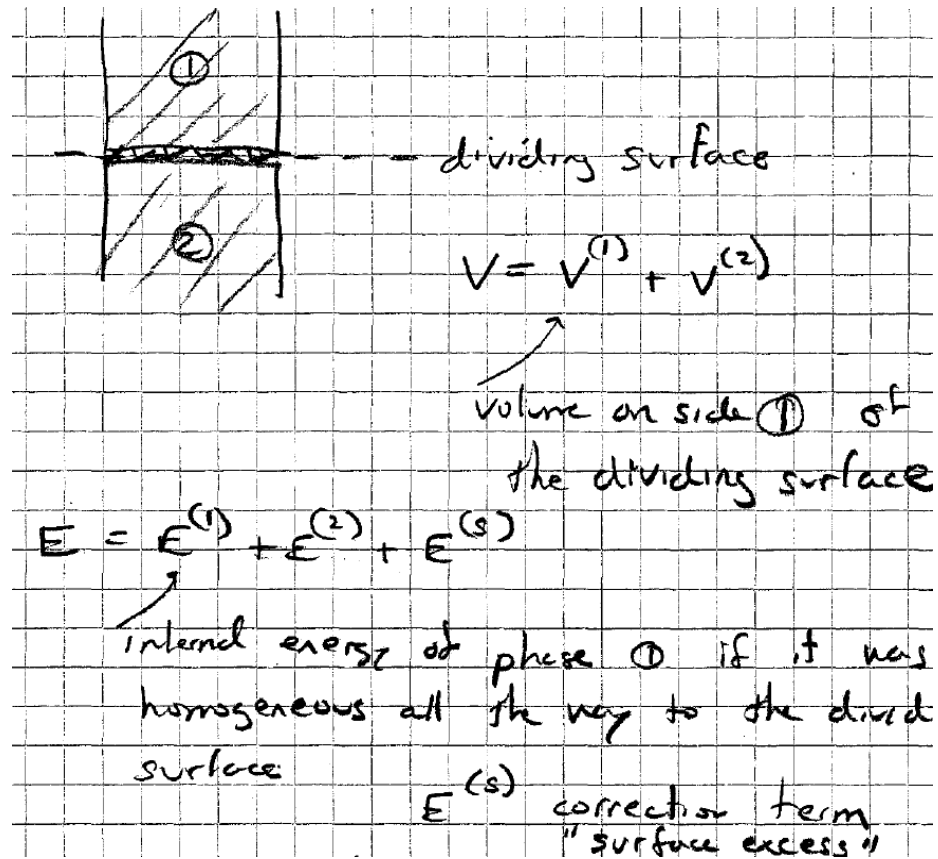 ①
dividing surface
②
V = V^(1) + V^(2)
volume on side ① of
the dividing surface
E = E^(1) + E^(2) + E^(s)
internal energy of phase ① if it was
homogeneous all the way to the divid
surface
E^(s) correction term
"surface excess"